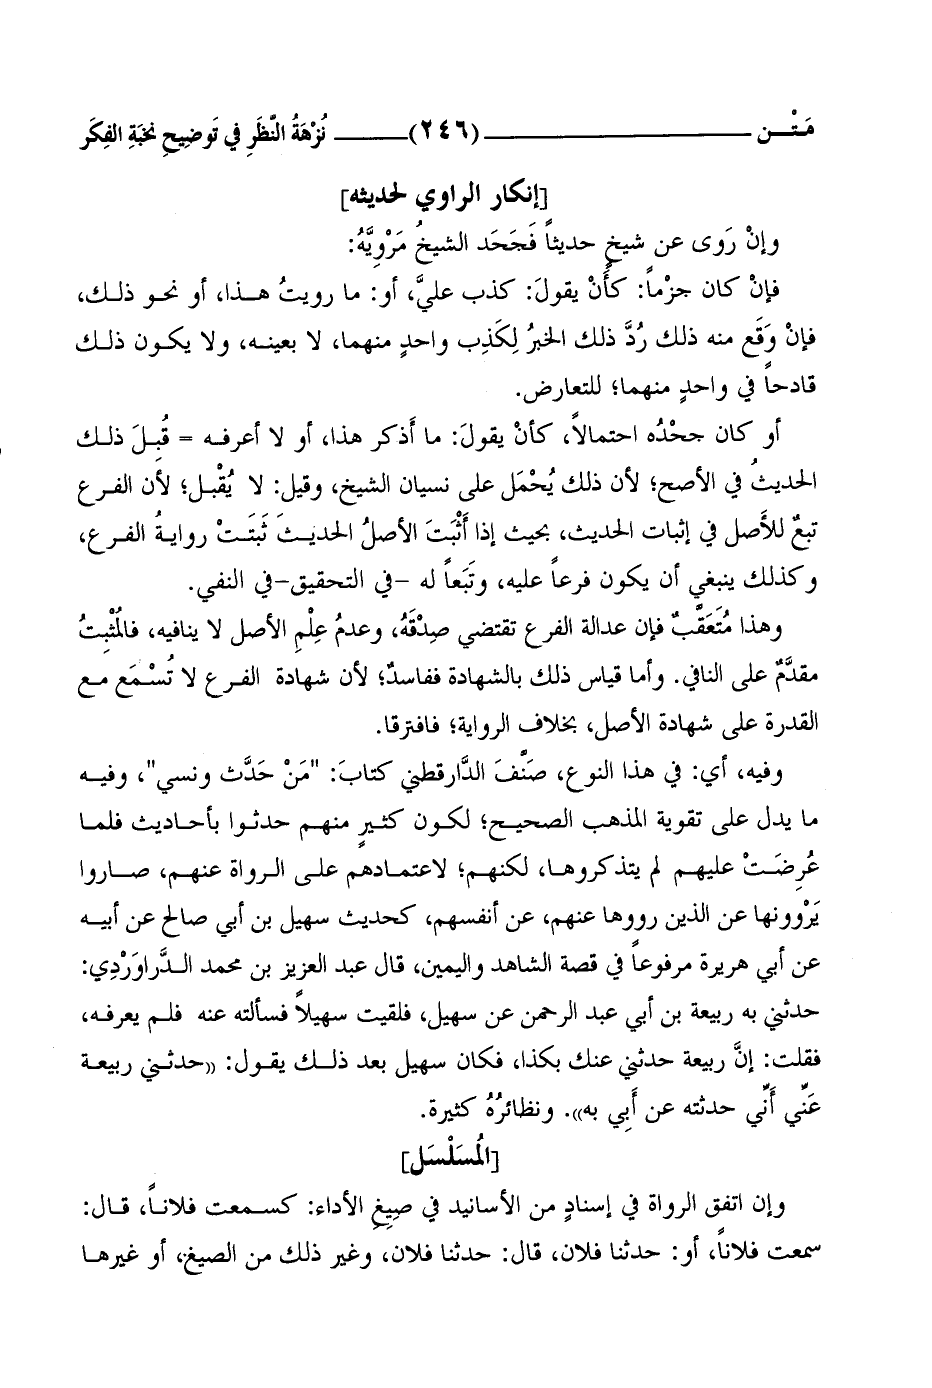 مَتْـــن ــــــــــــــــــ (٢٤٦) ـــــــ نُزْهَةُ النَّظَرِ في تَوضِيحِ نخبَةِ الفِكَر
[إنكار الراوي لحديثه]
وإنْ رَوى عن شيخٍ حديثاً فَجَحَد الشيخُ مَرْوِيَّهُ:
فإنْ كان جزْماً: كأَنْ يقولَ: كذب عليَّ، أو: ما رويتُ هـذا، أو نحو ذلـك،
فإنْ وَقَع منه ذلك رُدَّ ذلك الخبرُ لِكَذِب واحدٍ منهما، لا بعينـه، ولا يكـون ذلـك
قادحاً في واحدٍ منهما؛ للتعارض.
أو كان جحْدُه احتمالاً، كأنْ يقولَ: ما أَذكر هذا، أو لا أعرفـه = قُبِلَ ذلـك
الحديثُ في الأصح؛ لأن ذلك يُحْمَل على نسيان الشيخ، وقيل: لا يُقْبـل؛ لأن الفـرع
تبعٌ للأَصل في إثبات الحديث، بحيث إذا أَثْبَتَ الأصلُ الحديـثَ ثَبَتَـتْ روايـةُ الفـرع،
وكذلك ينبغي أن يكون فرعاً عليه، وتَبَعاً له -في التحقيق-في النفي.
وهذا مُتَعَقَّبٌ فإن عدالة الفرع تقتضي صِدْقَهُ، وعدمُ عِلْمِ الأصل لا ينافيه، فالمُثْبِتُ
مقدَّمٌ على النافي. وأما قياس ذلك بالشهادة ففاسدٌ؛ لأن شهادة الفرع لا تُسْمَع مـع
القدرة على شهادة الأصل، بخلاف الرواية؛ فافترقا.
وفيه، أي: في هذا النوع، صَنَّفَ الدَّارقطني كتابَ: "مَنْ حَدَّث ونسي"، وفيـه
ما يدل على تقوية المذهب الصحيـح؛ لكـون كثيرٍ منهـم حدثـوا بأحاديث فلمـا
عُرِضَـتْ عليهـم لم يتذكروهـا، لكنهـم؛ لاعتمـادهم علـى الـرواة عنهـم، صـاروا
يَرْوونها عن الذين رووها عنهم، عن أنفسهم، كحديث سهيل بن أبي صالح عن أبيـه
عن أبي هريرة مرفوعاً في قصة الشاهد واليمين، قال عبد العزيز بن محمد الـدَّراوَرْدِي:
حدثني به ربيعة بن أبي عبد الرحمن عن سهيل، فلقيت سهيلاً فسألته عنه فلـم يعرفـه،
فقلت: إنَّ ربيعة حدثني عنك بكذا، فكان سهيل بعد ذلـك يقـول: «حدثـني ربيعـة
عَنِّي أَنِّي حدثته عن أَبِي به». ونظائرُهُ كثيرة.
[المُسَلْسَل]
وإن اتفق الرواة في إسنادٍ من الأسانيد في صِيَغِ الأداء: كسـمعت فلانـاً، قـال:
سمعت فلاناً، أو: حدثنا فلان، قال: حدثنا فلان، وغير ذلك من الصيغ، أو غيرهـا